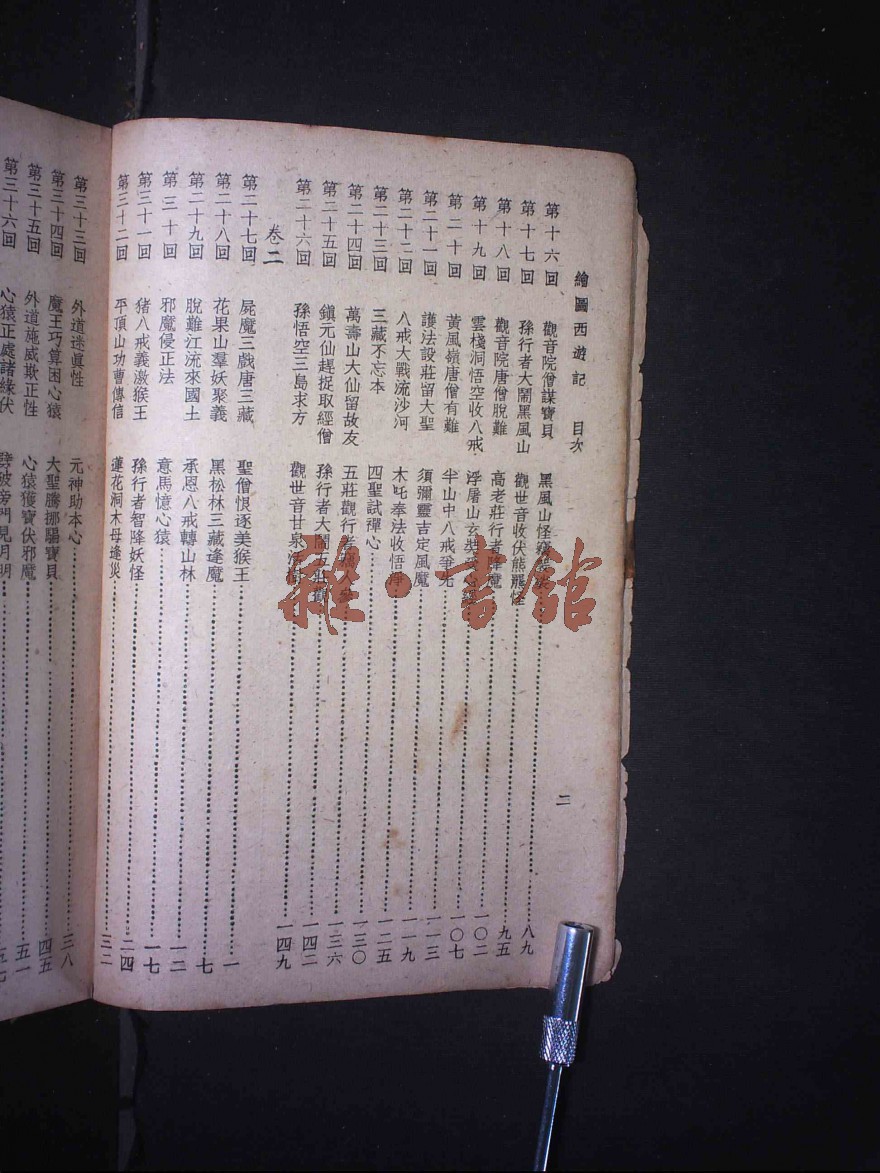 繪圖西遊記 目次 二
第十六回 觀音院僧謀寶貝 黑風山怪竊 八九
第十七回 孫行者大鬧黑風山 觀世音收伏熊羆怪 九五
第十八回 觀音院唐僧脫難 高老莊行者降魔 一〇二
第十九回 雲棧洞悟空收八戒 浮屠山玄奘受心經 一〇七
第二十回 黃風嶺唐僧有難 半山中八戒爭先 一一三
第二十一回 護法設莊留大聖 須彌靈吉定風魔 一一九
第二十二回 八戒大戰流沙河 木吒奉法收悟淨 一二五
第二十三回 三藏不忘本 四聖試禪心 一三〇
第二十四回 萬壽山大仙留故友 五莊觀行者竊人 一三六
第二十五回 鎮元仙趕捉取經僧 孫行者大鬧五莊觀 一四二
第二十六回 孫悟空三島求方 觀世音甘泉活樹 一四九
卷二
第二十七回 屍魔三戲唐三藏 聖僧恨逐美猴王 一
第二十八回 花果山羣妖聚義 黑松林三藏逢魔 七
第二十九回 脫難江流來國土 承恩八戒轉山林 一二
第三十回 邪魔侵正法 意馬憶心猿 一七
第三十一回 猪八戒義激猴王 孫行者智降妖怪 二四
第三十二回 平頂山功曹傳信 蓮花洞木母逢災 三二
第三十三回 外道迷眞性 元神助本心 三八
第三十四回 魔王巧算困心猿 大聖騰挪騙寶貝 四五
第三十五回 外道施威欺正性 心猿獲寶伏邪魔 五一
第三十六回 心猿正處諸緣伏 劈破旁門見月明 五七
雜·書館